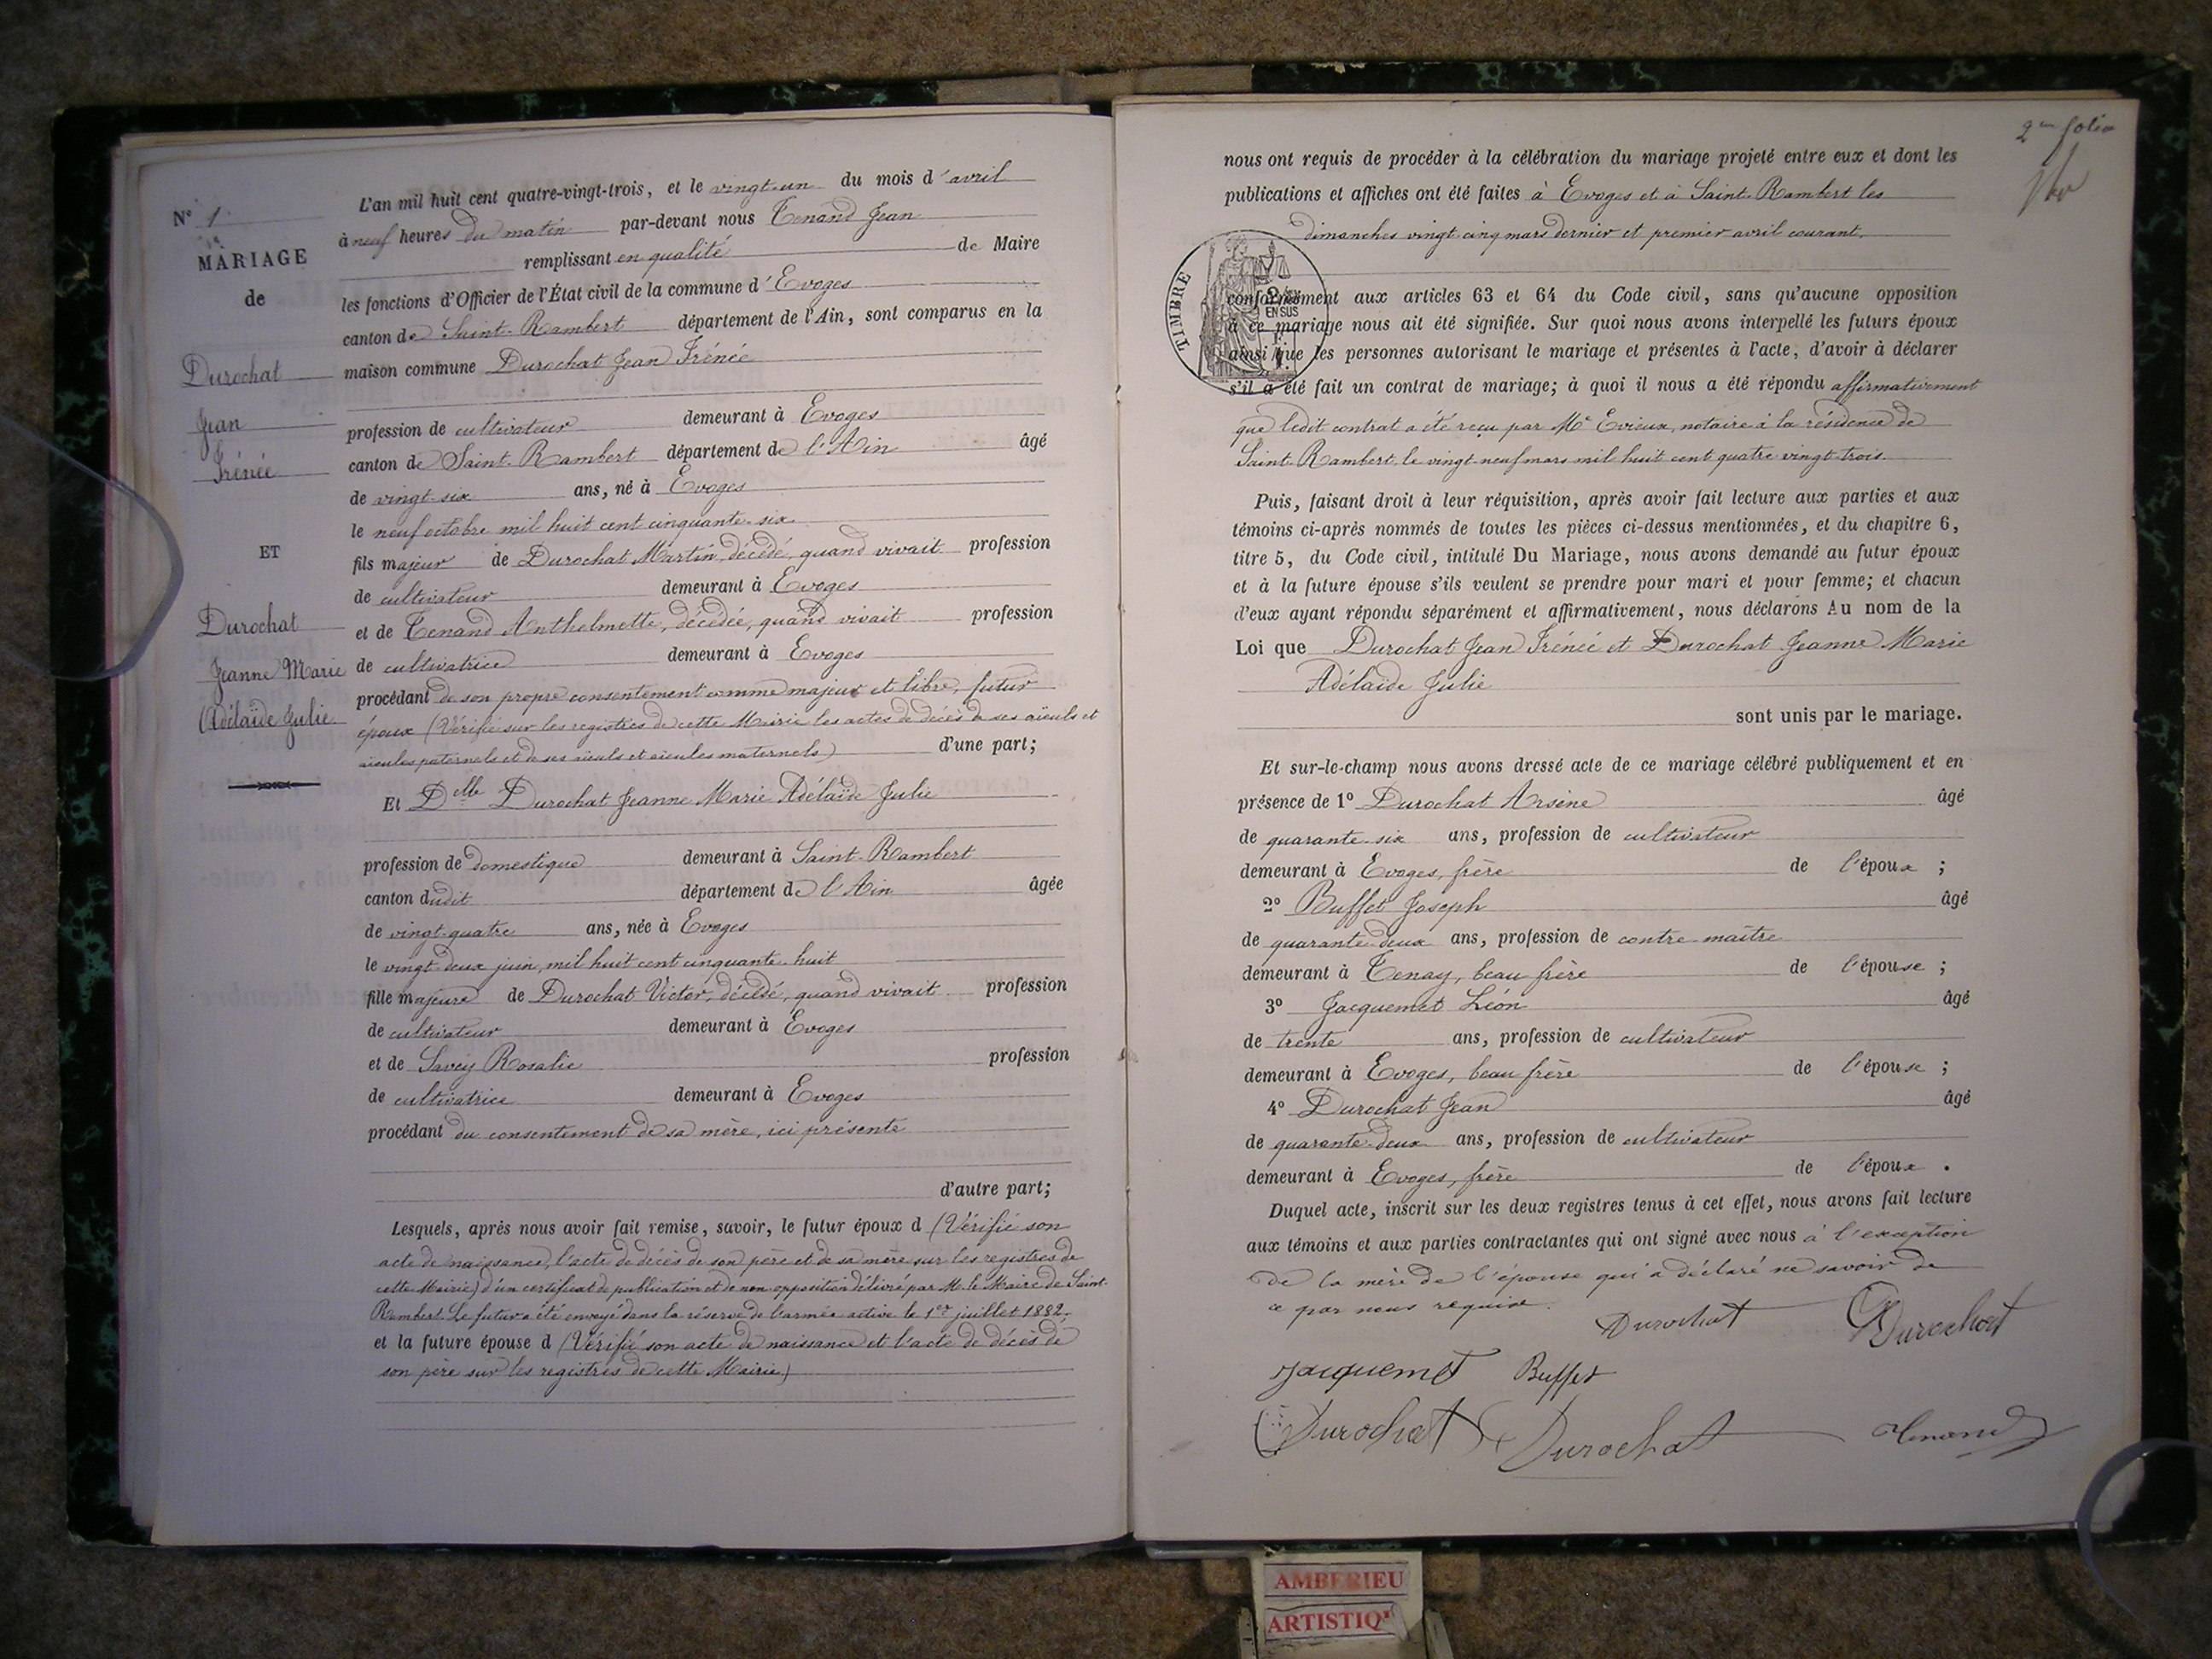 N° 1
MARIAGE
de
Durochat
Jean
Irénée
ET
Durochat
Jeanne Marie
Adélaïde Julie
L'an mil huit cent quatre-vingt-trois, et le vingt-un du mois d'avril
à neuf heures du matin par-devant nous Tenand Jean
remplissant en qualité de Maire
les fonctions d'Officier de l'État civil de la commune d'Evoges
canton de Saint-Rambert département de l'Ain, sont comparus en la
maison commune Durochat Jean Irénée
profession de cultivateur demeurant à Evoges
canton de Saint-Rambert département de l'Ain âgé
de vingt-six ans, né à Evoges
le neuf octobre mil huit cent cinquante-six
fils majeur de Durochat Martin, décédé, quand vivait profession
de cultivateur demeurant à Evoges
et de Tenand Anthelmette, décédée, quand vivait profession
de cultivatrice demeurant à Evoges
procédant de son propre consentement comme majeur et libre, futur
époux (Vérifié sur les registres de cette Mairie les actes de décès de ses aïeuls et
aïeules paternels et de ses aïeuls et aïeules maternels) d'une part;
Et Delle Durochat Jeanne Marie Adélaïde Julie
profession de domestique demeurant à Saint-Rambert
canton dudit département de l'Ain âgée
de vingt-quatre ans, née à Evoges
le vingt-deux juin, mil huit cent cinquante-huit
fille majeure de Durochat Victor, décédé, quand vivait profession
de cultivateur demeurant à Evoges
et de Savey Rosalie profession
de cultivatrice demeurant à Evoges
procédant du consentement de sa mère, ici présente
d'autre part;
Lesquels, après nous avoir fait remise, savoir, le futur époux d (Vérifié son
acte de naissance, l'acte de décès de son père et de sa mère sur les registres de
cette Mairie) d'un certificat de publication et de non opposition délivré par M. le Maire de Saint-
Rambert. Le futur a été envoyé dans la réserve de l'armée active le 1er juillet 1882,
et la future épouse d (Vérifié son acte de naissance et l'acte de décès de
son père sur les registres de cette Mairie)
2me folio
nous ont requis de procéder à la célébration du mariage projeté entre eux et dont les
publications et affiches ont été faites à Evoges et à Saint-Rambert les
dimanches vingt cinq mars dernier et premier avril courant.
TIMBRE
EN SUS
conformément aux articles 63 et 64 du Code civil, sans qu'aucune opposition
à ce mariage nous ait été signifiée. Sur quoi nous avons interpellé les futurs époux
ainsi que les personnes autorisant le mariage et présentes à l'acte, d'avoir à déclarer
s'il a été fait un contrat de mariage; à quoi il nous a été répondu affirmativement
que ledit contrat a été reçu par Me Evieux, notaire à la résidence de
Saint-Rambert, le vingt-neuf mars mil huit cent quatre-vingt-trois.
Puis, faisant droit à leur réquisition, après avoir fait lecture aux parties et aux
témoins ci-après nommés de toutes les pièces ci-dessus mentionnées, et du chapitre 6,
titre 5, du Code civil, intitulé Du Mariage, nous avons demandé au futur époux
et à la future épouse s'ils veulent se prendre pour mari et pour femme; et chacun
d'eux ayant répondu séparément et affirmativement, nous déclarons Au nom de la
Loi que Durochat Jean Irénée et Durochat Jeanne Marie
Adélaïde Julie
sont unis par le mariage.
Et sur-le-champ nous avons dressé acte de ce mariage célébré publiquement et en
présence de 1° Durochat Arsène âgé
de quarante-six ans, profession de cultivateur
demeurant à Evoges, frère de l'époux ;
2° Buffet Joseph âgé
de quarante-deux ans, profession de contre-maître
demeurant à Tenay, beau frère de l'épouse ;
3° Jacquemet Léon âgé
de trente ans, profession de cultivateur
demeurant à Evoges, beau frère de l'épouse ;
4° Durochat Jean âgé
de quarante-deux ans, profession de cultivateur
demeurant à Evoges, frère de l'époux .
Duquel acte, inscrit sur les deux registres tenus à cet effet, nous avons fait lecture
aux témoins et aux parties contractantes qui ont signé avec nous à l'exception
de la mère de l'épouse qui a déclaré ne savoir de
ce par nous requise.
Durochat Durochat
Jacquemet Buffet
Durochat Durochat Tenand
AMBERIEU
ARTISTIQ